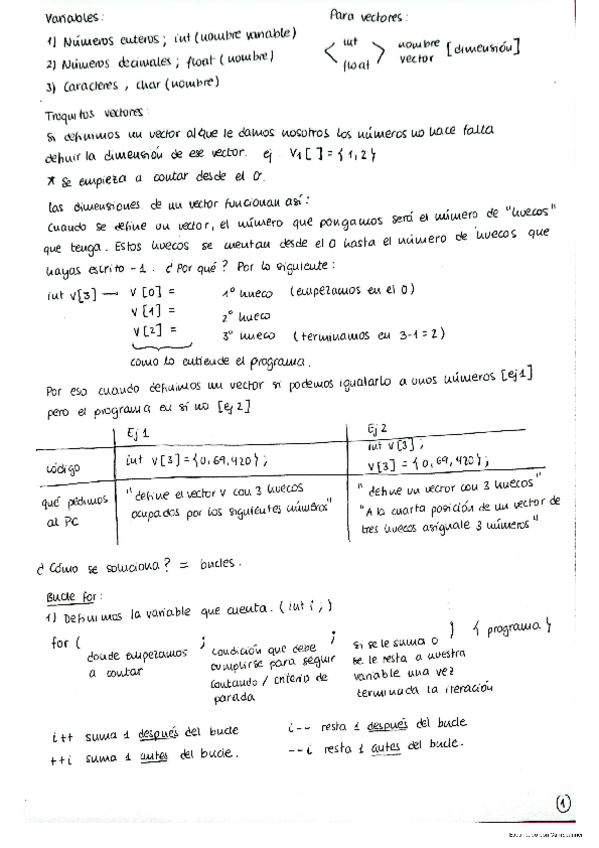 Variables:
1) Números enteros; int (nombre variable)
2) Números decimales; float (nombre)
3) Caracteres, char (nombre)
Para vectores:
< int float > nombre vector [dimensión]
Truquitos vectores:
Si definimos un vector al que le damos nosotros los números no hace falta
definir la dimensión de ese vector. ej V1[ ] = {1,2}
* Se empieza a contar desde el 0.
Las dimensiones de un vector funcionan así:
Cuando se define un vector, el número que pongamos será el número de "huecos"
que tenga. Estos huecos se cuentan desde el 0 hasta el número de huecos que
hayas escrito -1. ¿Por qué? Por lo siguiente:
int v[3] → v[0] = 1º hueco (empezamos en el 0)
v[1] = 2º hueco
v[2] = 3º hueco (terminamos en 3-1=2)
como lo entiende el programa.
Por eso cuando definimos un vector si podemos igualarlo a unos números [ej1]
pero el programa en sí no [ej2]
Ej 1
Ej 2
código
int v[3] = {0,69,420};
int v[3];
v[3] = {0,69,420};
qué pedimos
al PC
"define el vector v con 3 huecos
ocupados por los siguientes números"
"define un vector con 3 huecos"
"A la cuarta posición de un vector de
tres huecos asígnale 3 números"
¿Cómo se soluciona? = bucles.
Bucle for:
1) Definimos la variable que cuenta. (int i;)
for (
donde empezamos
a contar
;
condición que debe
cumplirse para seguir
contando / criterio de
parada
;
si se le suma o
se le resta a nuestra
variable una vez
terminada la iteración
) { programa }
i++ suma 1 después del bucle
++i suma 1 antes del bucle.
i-- resta 1 después del bucle
--i resta 1 antes del bucle.
1